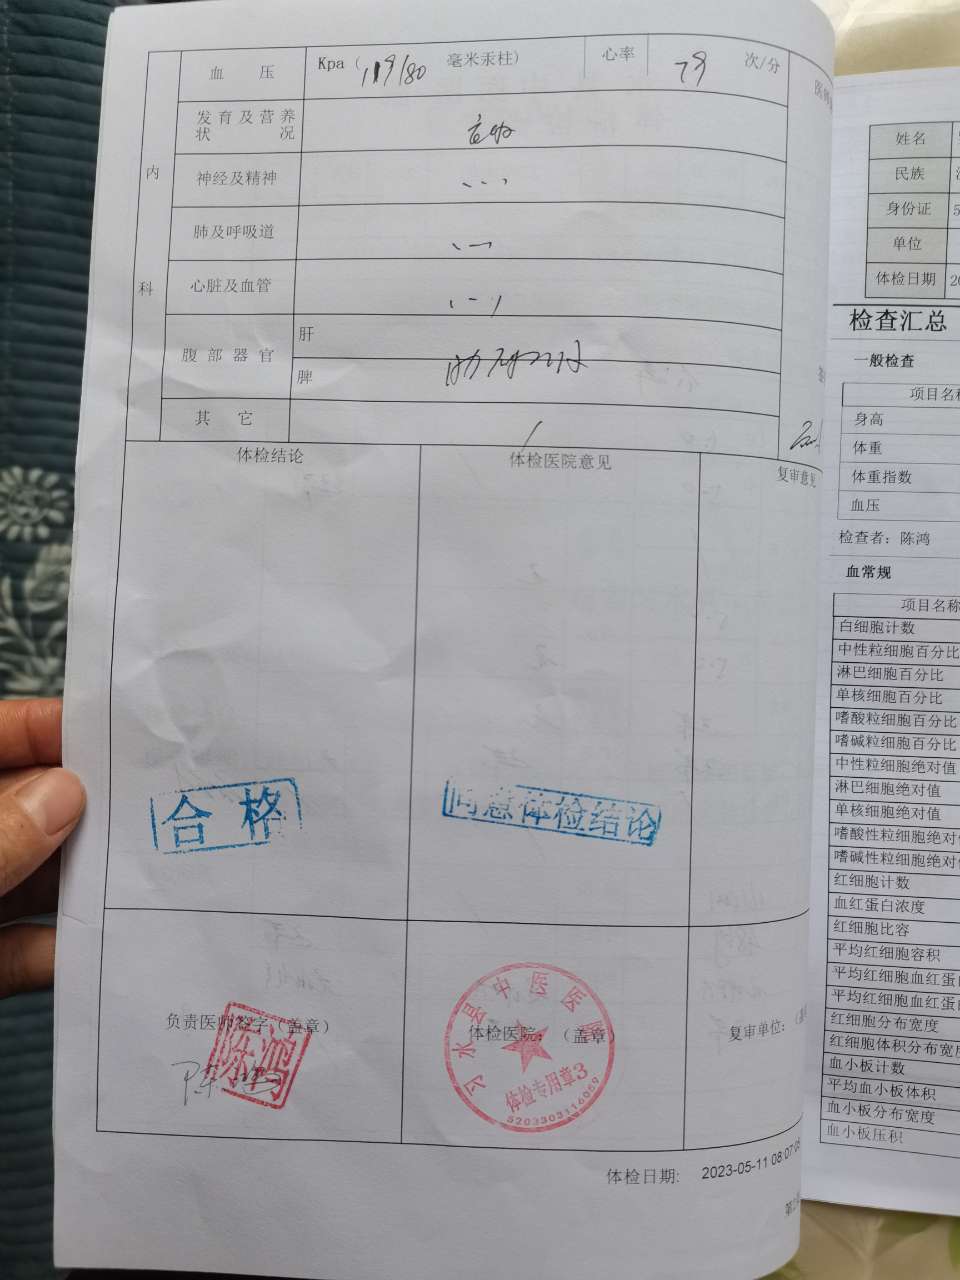 血 压 Kpa（119/80 毫米汞柱） 心率 79 次/分
发育及营养
状 况
神经及精神
肺及呼吸道
心脏及血管
内
科
腹部器官
肝
脾
其 它
体检结论
体检医院意见
复审意见
合格
同意体检结论
负责医师签字（盖章）
陈鸿
体检医院：（盖章）
习水县中医医
体检专用章3
5203303116069
复审单位：
体检日期: 2023-05-11 08:07:0
姓名
民族
身份证
单位
体检日期 20
检查汇总
一般检查
项目名称
身高
体重
体重指数
血压
检查者：陈鸿
血常规
项目名称
白细胞计数
中性粒细胞百分比
淋巴细胞百分比
单核细胞百分比
嗜酸粒细胞百分比
嗜碱粒细胞百分比
中性粒细胞绝对值
淋巴细胞绝对值
单核细胞绝对值
嗜酸性粒细胞绝对
嗜碱性粒细胞绝对
红细胞计数
血红蛋白浓度
红细胞比容
平均红细胞容积
平均红细胞血红蛋
平均红细胞血红蛋
红细胞分布宽度
红细胞体积分布宽
血小板计数
平均血小板体积
血小板分布宽度
血小板压积